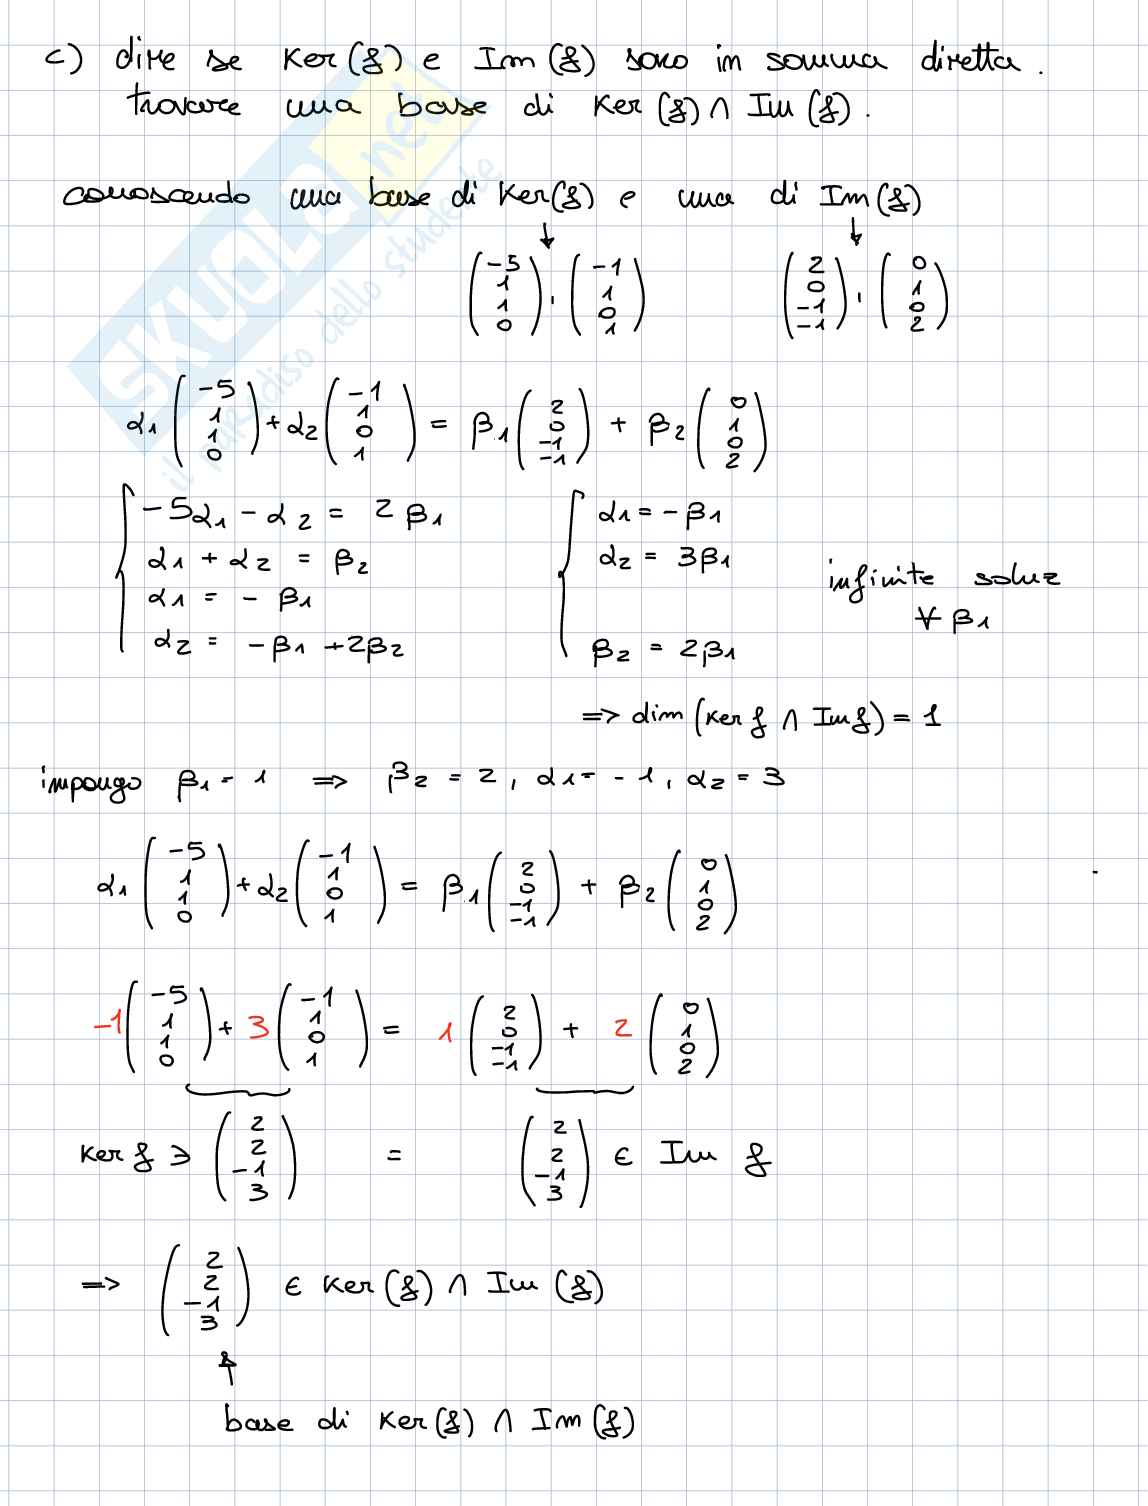 c) dire se Ker(f) e Im(f) sono in somma diretta.
trovare una base di Ker(f) ∩ Im(f).
conoscendo una base di Ker(f) e una di Im(f)
↓ ↓
(-5 1 1 0), (-1 1 0 1) (2 0 -1 -1), (0 1 0 2)
α1 (-5 1 1 0) + α2 (-1 1 0 1) = β1 (2 0 -1 -1) + β2 (0 1 0 2)
{ -5α1 - α2 = 2β1 { α1 = -β1
α1 + α2 = β2 α2 = 3β1
α1 = -β1 infinite soluz
∀ β1
α2 = -β1 + 2β2 β2 = 2β1
=> dim (Ker f ∩ Im f) = 1
impongo β1 = 1 => β2 = 2, α1 = -1, α2 = 3
α1 (-5 1 1 0) + α2 (-1 1 0 1) = β1 (2 0 -1 -1) + β2 (0 1 0 2)
-1 (-5 1 1 0) + 3 (-1 1 0 1) = 1 (2 0 -1 -1) + 2 (0 1 0 2)
Ker f ∋ (2 2 -1 3) = (2 2 -1 3) ∈ Im f
=> (2 2 -1 3) ∈ Ker(f) ∩ Im(f)
↑
base di Ker(f) ∩ Im(f)
SKUOLA.net
il paradiso dello studente